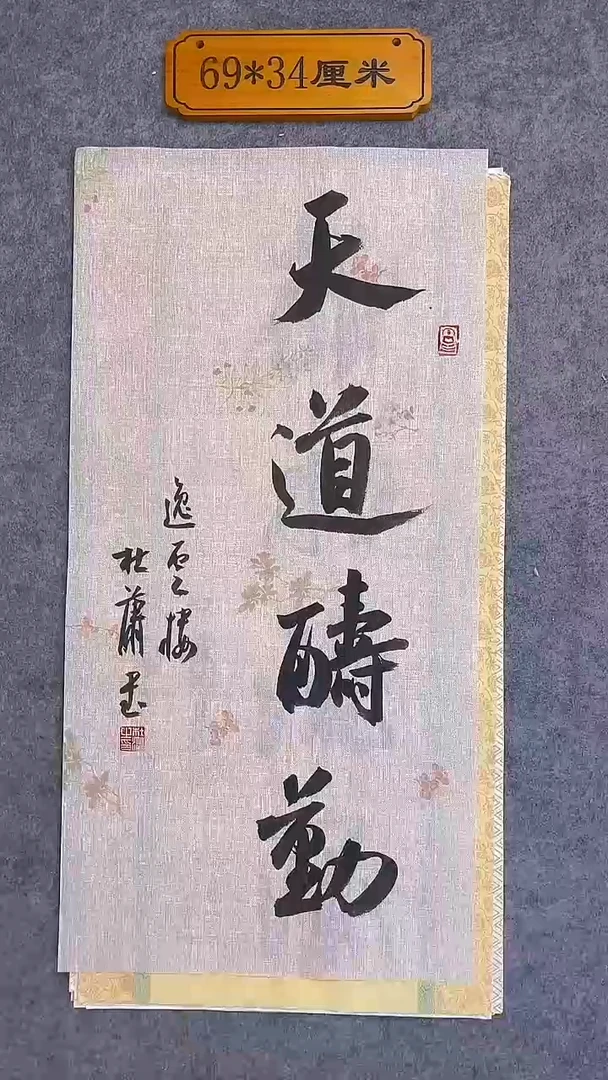 69*34厘米
天道醻勤
逸石之楼
杜萧书